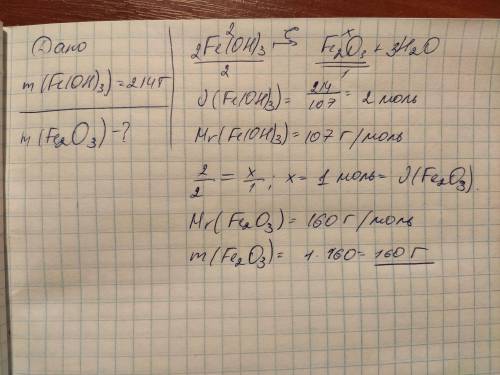 Дано
m(Fe(OH)3)=214г
m(Fe2O3)-?
2 x
2Fe(OH)3 → Fe2O3 + 3H2O
2 1
ν(Fe(OH)3) = 214/107 = 2 моль
Mr(Fe(OH)3) = 107 г/моль
2/2 = x/1; x = 1 моль = ν(Fe2O3).
Mr(Fe2O3) = 160 г/моль
m(Fe2O3) = 1·160 = 160 г